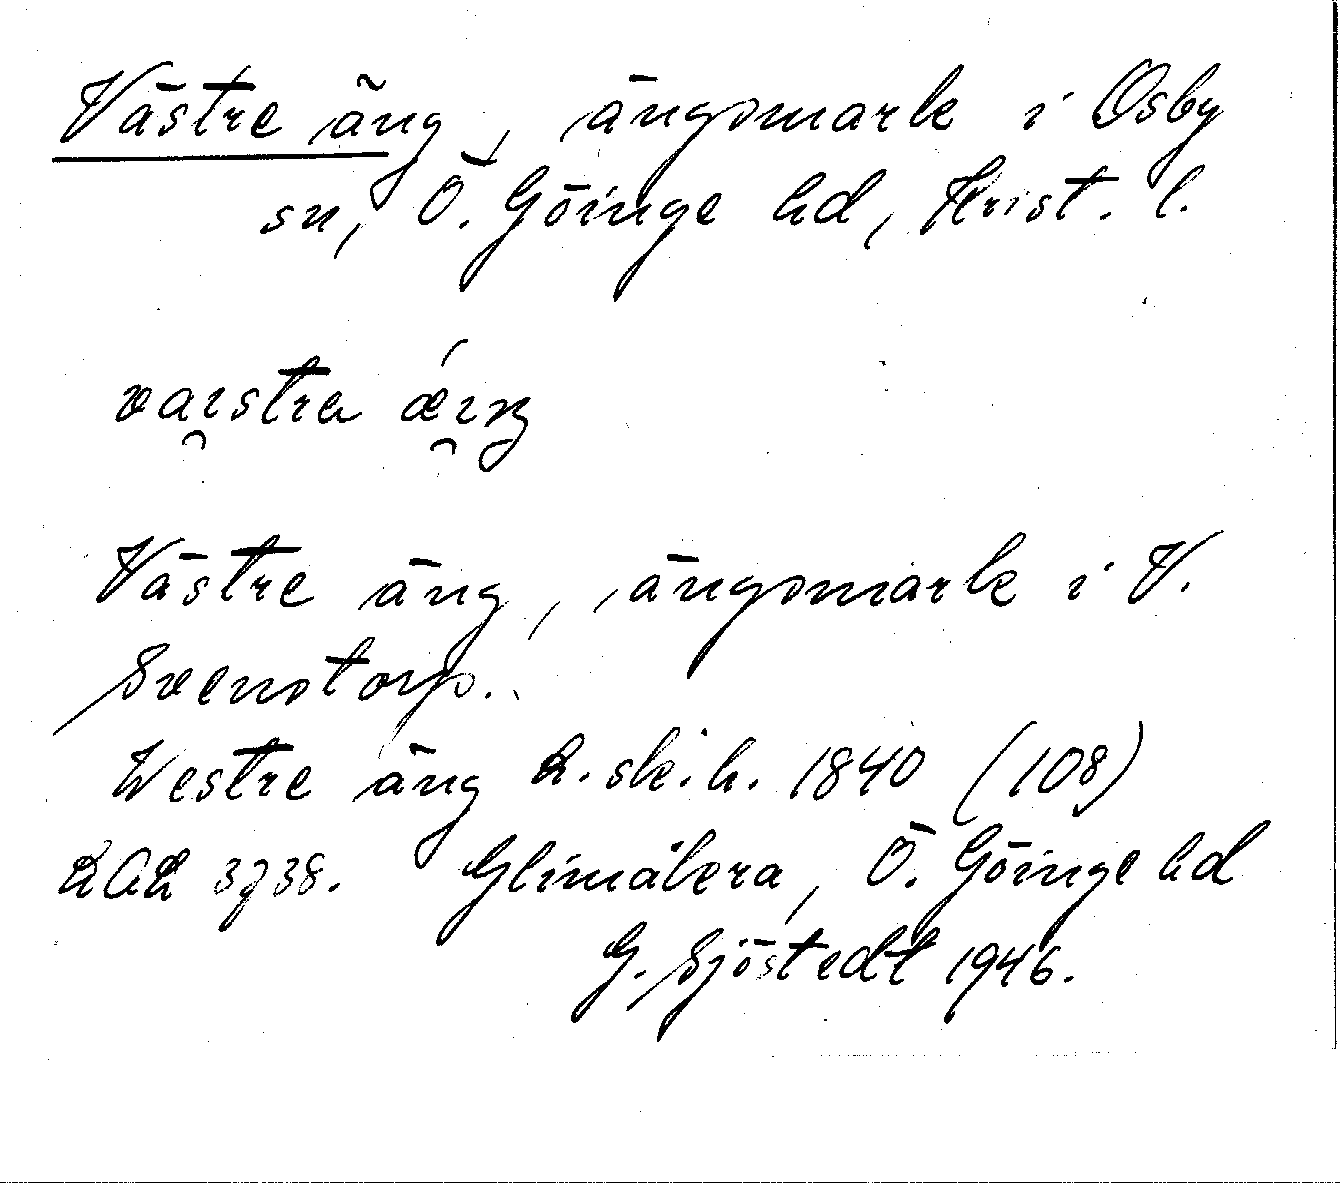 Västre äng, ängsmark i Osby
sn, Ö. Göinge hd, Krist. l.
Västre äng, ängsmark i V.
Svenstorp.
Westre äng L.sk.h. 1840 (108)
LAL 3738. Glimåkra, Ö. Göinge hd
G. Sjöstedt 1946.